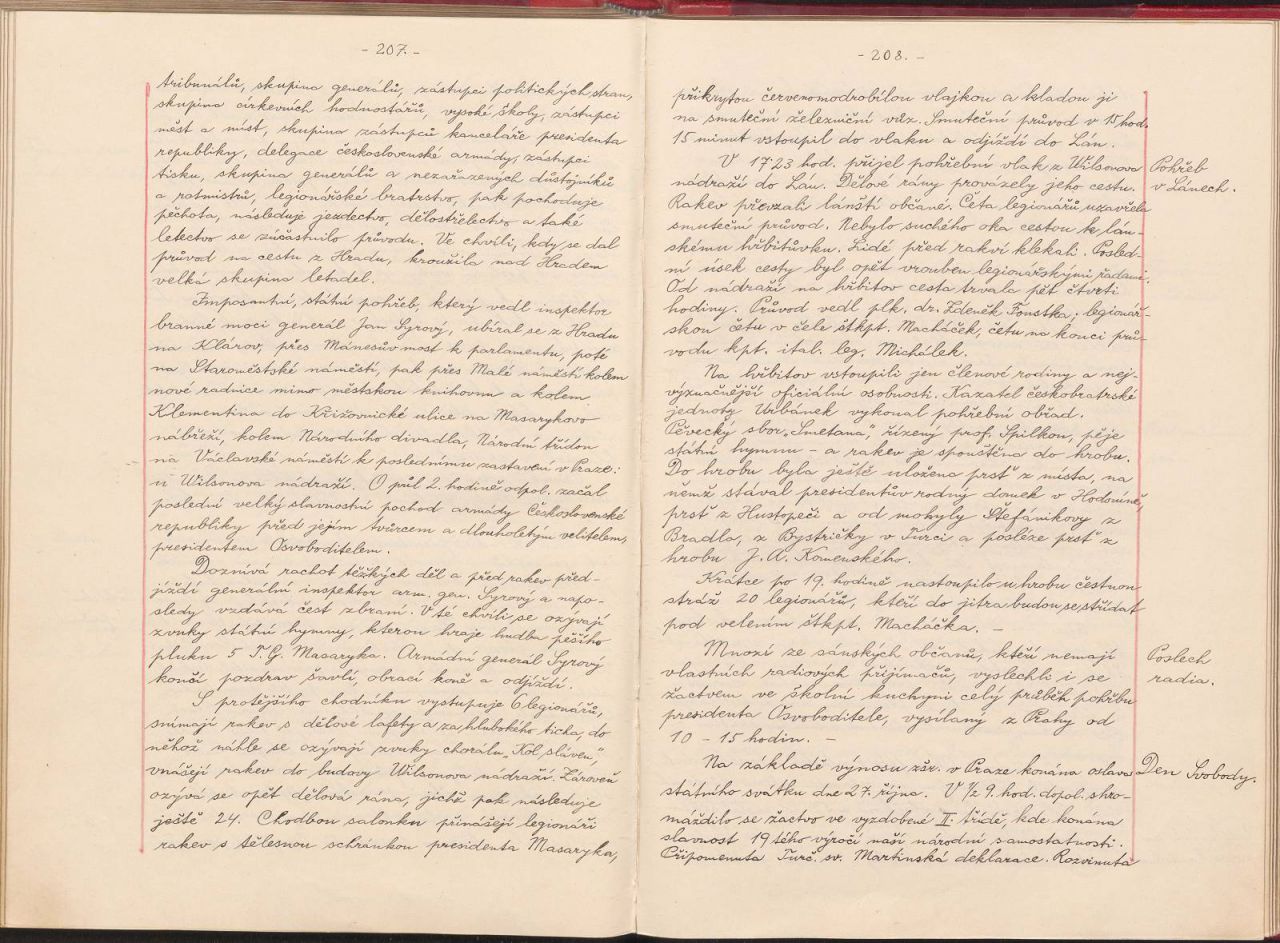 - 207. -
tribunálů, skupina generálů, zástupci politických stran,
skupina církevních hodnostářů, vysoké školy, zástupci
měst a míst, skupina zástupců kanceláře presidenta
republiky, delegace československé armády, zástupci
tisku, skupina generálů a nezařazených důstojníků
a rotmistrů, legionářské bratrstvo, pak pochoduje
pěchota, následuje jezdectvo, dělostřelectvo a také
letectvo se zúčastnilo průvodu. Ve chvíli, kdy se dal
průvod na cestu z Hradu, kroužila nad Hradem
velká skupina letadel.
Imposantní, státní pohřeb, který vedl inspektor
branné moci generál Jan Syrový, ubíral se z Hradu
na Klárov, přes Mánesův most k parlamentu, poté
na Staroměstské náměstí, pak přes Malé náměstí kolem
nové radnice mimo městskou knihovnu a kolem
Klementina do Křižovnické ulice na Masarykovo
nábřeží, kolem Národního divadla, Národní třídou
na Václavské náměstí k poslednímu zastavení v Praze:
u Wilsonova nádraží. O půl 2. hodině odpol. začal
poslední velký slavnostní pochod armády Československé
republiky před jejím tvůrcem a dlouholetým velitelem,
presidentem Osvoboditelem.
Doznívá rachot těžkých děl a před rakev před-
jíždí generální inspektor arm. gen. Syrový a napo-
sledy vzdává čest zbraní. V té chvíli se ozývají
zvuky státní hymny, kterou hraje hudba pěšího
pluku 5 T. G. Masaryka. Armádní generál Syrový
končí pozdrav šavlí, obrací koně a odjíždí.
S protějšího chodníku vystupuje 6 legionářů,
snímají rakev s dělové lafety a za hlubokého ticha, do
něhož náhle se ozývají zvuky chorálu „Kol sláven",
vnášejí rakev do budovy Wilsonova nádraží. Zároveň
ozývá se opět dělová rána, jichž pak následuje
ještě 24. Chodbou salonku přinášejí legionáři
rakev s tělesnou schránkou presidenta Masaryka,
- 208. -
přikrytou červenomodrobílou vlajkou a kladou ji
na smuteční železniční vůz. Smuteční průvod v 15 hod.
15 minut vstoupil do vlaku a odjíždí do Lán.
V 17 23 hod. přijel pohřební vlak z Wilsonova
nádraží do Lán. Dělové rány provázely jeho cestu.
Rakev převzali lánští občané. Četa legionářů uzavřela
smuteční průvod. Nebylo suchého oka cestou k lán-
skému hřbitůvku. Lidé před rakví klekali. Posled-
ní úsek cesty byl opět vrouben legionářskými řadami.
Od nádraží na hřbitov cesta trvala pět čtvrtí
hodiny. Průvod vedl plk. dr. Zdeněk Fonstka; legionář-
skou četu v čele štkpt. Macháček, četu na konci prů-
vodu kpt. ital. leg. Michálek.
Na hřbitov vstoupili jen členové rodiny a nej-
význačnější oficiální osobnosti. Kazatel českobratrské
jednoty Urbánek vykonal pohřební obřad.
Pěvecký sbor „Smetana", řízený prof. Spilkou, pěje
státní hymnu - a rakev je spouštěna do hrobu.
Do hrobu byla ještě uložena prsť z místa, na
němž stával presidentův rodný domek v Hodoníně,
prsť z Hustopeči a od mohyly Štefánikovy z
Bradla, z Bystričky v Turci a posléze prsť z
hrobu J. A. Komenského.
Krátce po 19. hodině nastoupilo u hrobu čestnou
stráž 20 legionářů, kteří do jitra budou se střídat
pod velením štkpt. Macháčka. -
Mnozí ze sánských občanů, kteří nemají
vlastních radiových přijímačů, vyslechli i se
žactvem ve školní kuchyni celý průběh pohřbu
presidenta Osvoboditele, vysílaný z Prahy od
10 - 15 hodin. -
Na základě výnosu zšr. v Praze konána oslava
státního svátku dne 27. října. V ½ 9. hod. dopol. shro-
máždilo se žactvo ve vyzdobené II. třídě, kde konána
slavnost 19tého výročí naší národní samostatnosti.
Připomenuta Turč. sv. Martinská deklarace. Rozvinuta
Pohřeb
v Lánech.
Poslech
radia.
Den Svobody.